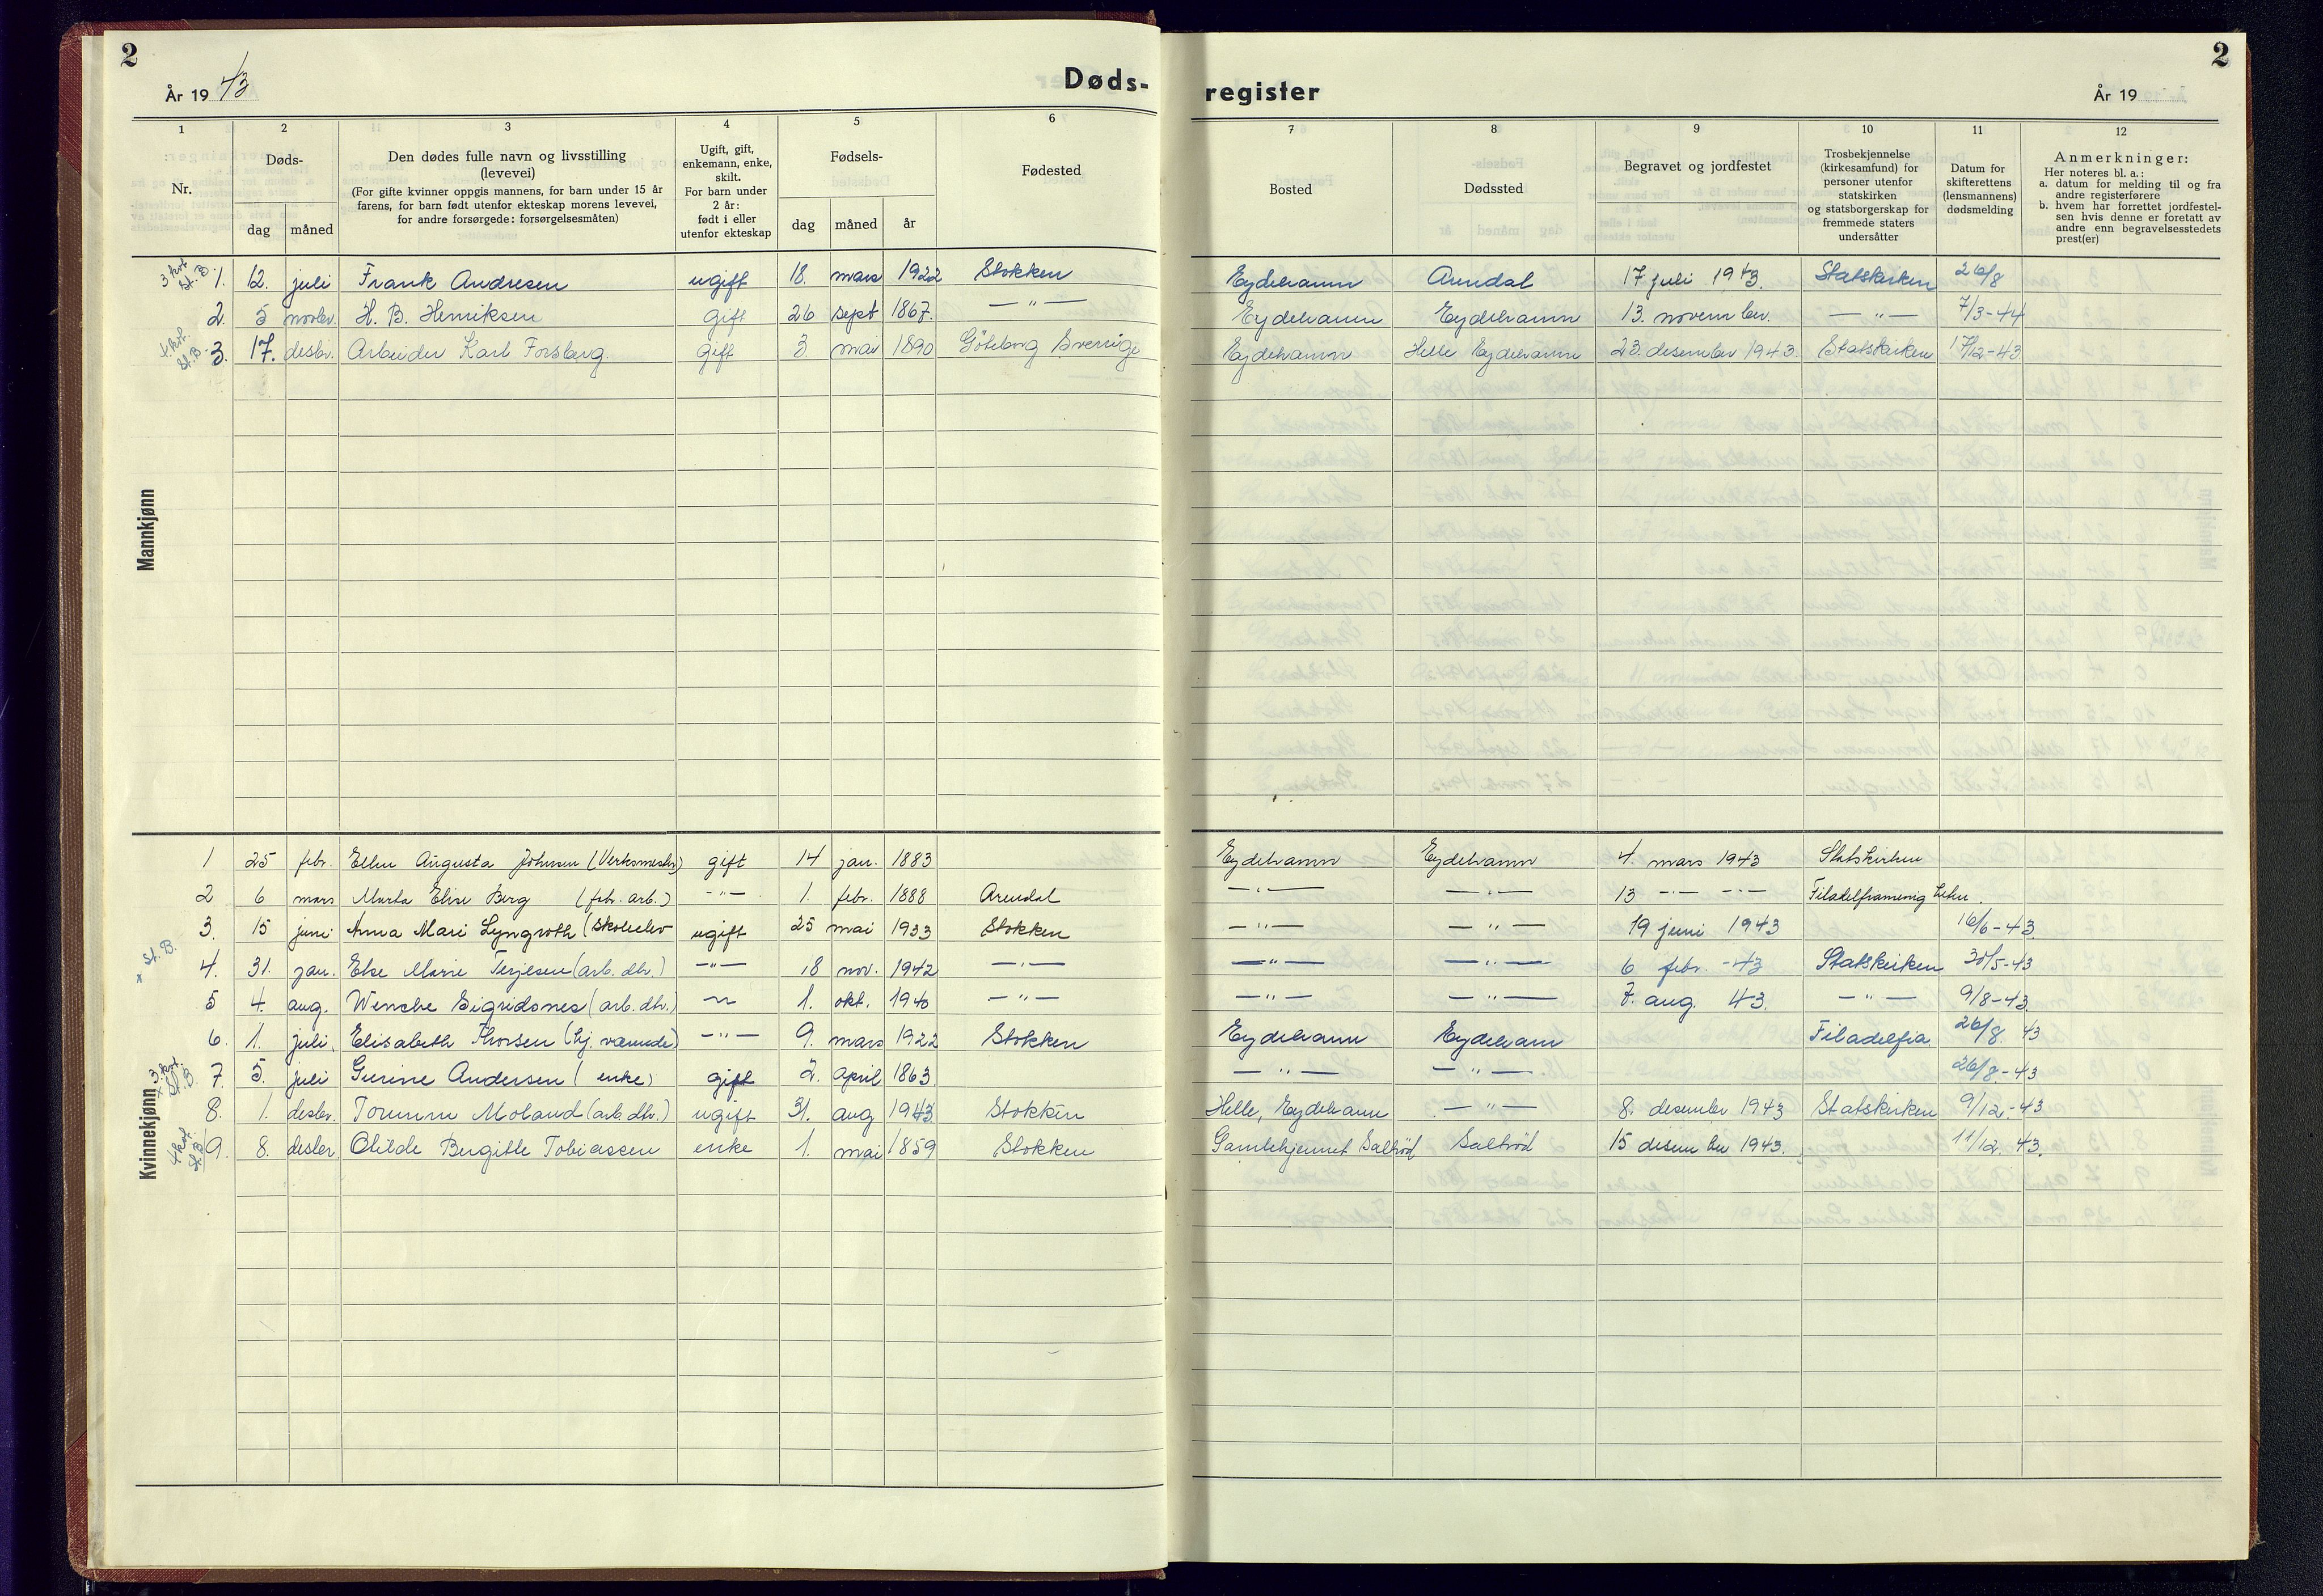 2
År 19 43
Døds-
register
År 19
2
1
2
3
4
5
6
7
8
9
10
11
12
Nr.
Døds-
dag
måned
Den dødes fulle navn og livsstilling
(levevei)
(For gifte kvinner oppgis mannens, for barn under 15 år
farens, for barn født utenfor ekteskap morens levevei,
for andre forsørgede: forsørgelsesmåten)
Ugift, gift,
enkemann, enke,
skilt.
For barn under
2 år:
født i eller
utenfor ekteskap
Fødsels-
dag
måned
år
Fødested
Bosted
Dødssted
Begravet og jordfestet
Trosbekjennelse
(kirkesamfund) for
personer utenfor
statskirken
og statsborgerskap for
fremmede staters
undersåtter
Datum for
skifterettens
(lensmannens)
dødsmelding
Anmerkninger:
Her noteres bl. a.:
a. datum for melding til og fra
andre registerførere
b. hvem har forrettet jordfestel-
sen hvis denne er foretatt av
andre enn begravelsesstedets
prest(er)
Mannkjønn
3 kvt St. B. 1. 12. juli Frank Andresen ugift 18. mars 1922 Stokken Eydehamn Arendal 17 juli 1943. Statskirken 26/8
2. 5 novbr. H. B. Henriksen gift 26 sept 1867. — " — Eydehamn Eydehamn 13. november. — " — 7/3-44
4 kvt. St. B. 3. 17. desbr. Arbeider Karl Forsberg gift 3 mai 1890 Göteborg Sverrige Eydehamn Helle Eydehamn 23. desember 1943. Statskirken 17/12-43
Kvinnekjønn
1 25 febr. Ellen Augusta Johnsen (Verksmester) gift 14 jan. 1883 Eydehamn Eydehamn 4. mars 1943 Statskirken
2 6 mars Marta Elise Berg (fabr. arb.) - " - 1. febr. 1888 Arendal — " — — " — 13 — " — — " — Filadelfiamenigheten.
3. 15 juni Anna Mari Lyngroth (skoleelev ugift 25 mai 1933 Stokken — " — — " — 19 juni 1943 16/6-43
x St. B. 4. 31. jan. Else Marie Terjesen (arb. dtr.) — " — 18 nov. 1942 — " — — " — — " — 6 febr. -43 Statskirken 30/5-43
5 4. aug. Wenche Sigridsnes (arb. dtr.) — " — 1. okt. 1940 — " — — " — — " — 7. aug. 43. — " — 9/8-43
6. 1. juli. Elisabeth Thorsen (hj. værende) — " — 9. mars 1922 Stokken Eydehamn Eydehamn Filadelfia 26/8. 43
x 3. kvt. St. B. 7. 5. juli Gurine Andersen (enke) gift 2. april 1863. — " — — " — 26/8-43
8. 1. desbr. Torunn Moland (arb. dtr.) ugift 31. aug 1943 Stokken Helle, Eydehamn — " — 8. desember 1943 Statskirken 9/12-43
4 kvt. St. B. 9. 8. desbr. Olilde Bergitte Tobiassen enke 1. mai 1859 Stokken Gamlehjemmet Saltrød Saltrød 15 desember 1943. 11/12. 43.